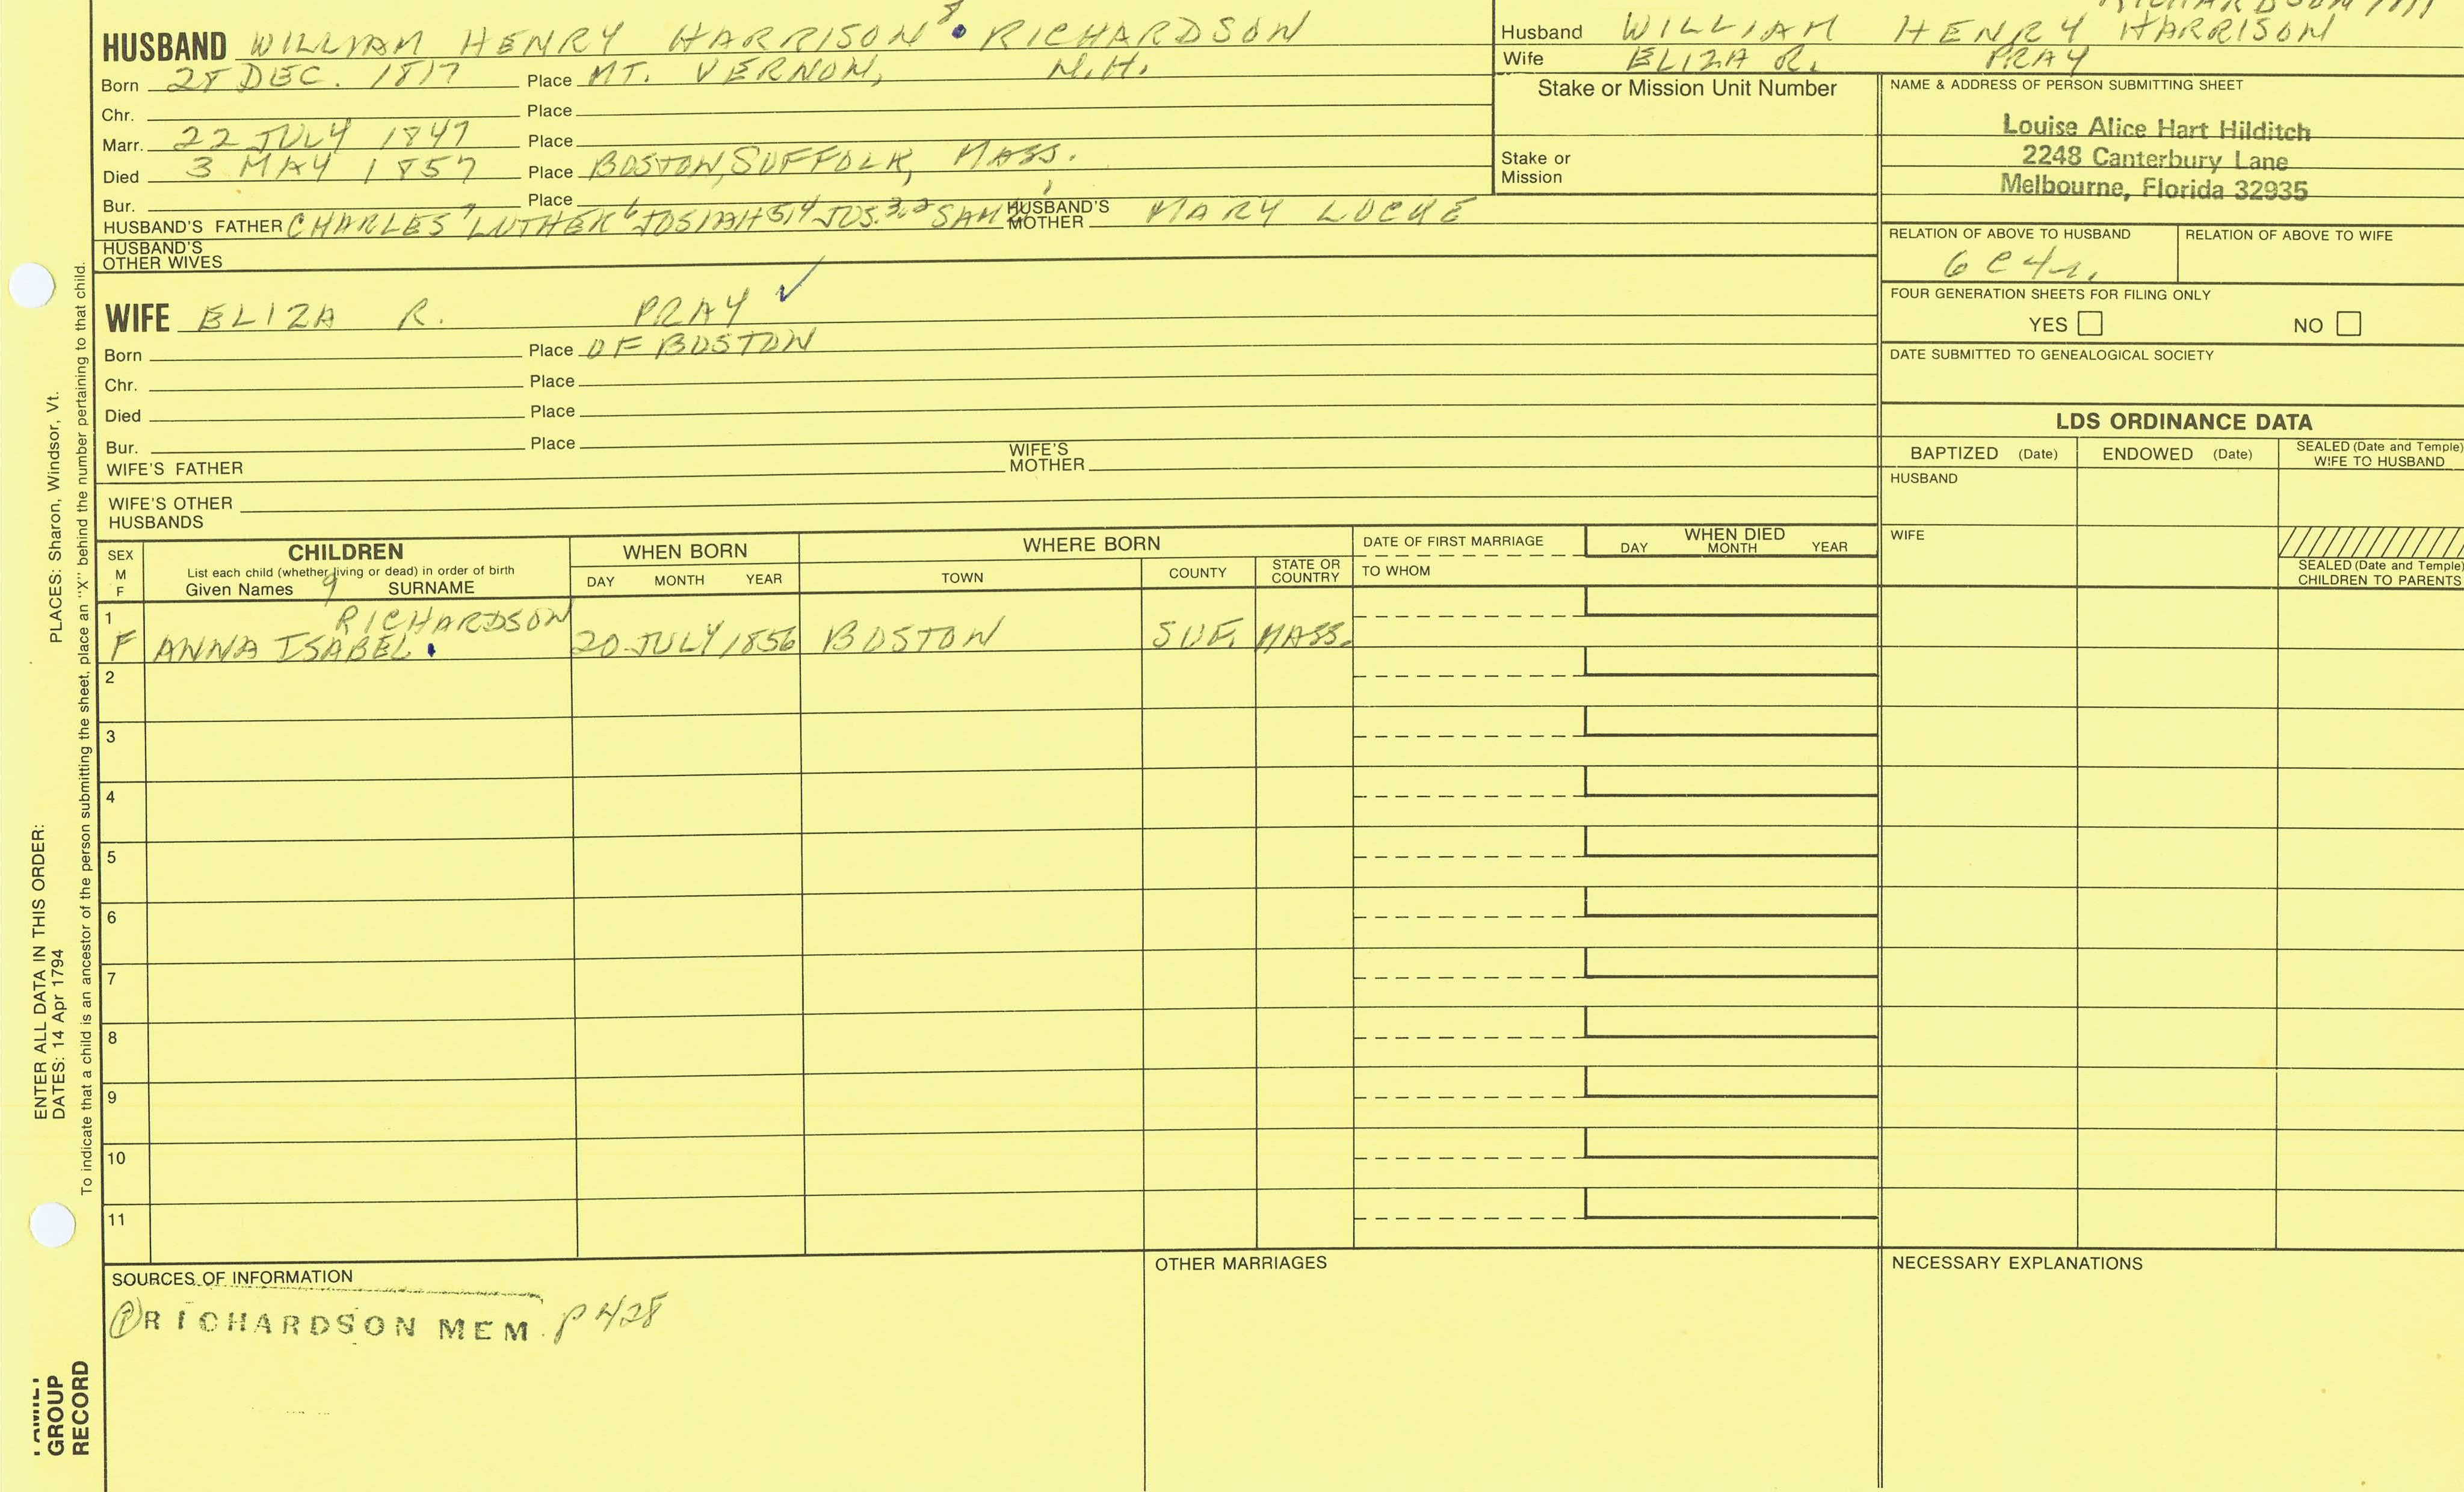 HUSBAND WILLIAM HENRY HARRISON 8 • RICHARDSON
Born 28 DEC. 1817 Place MT. VERNON, N.H.
Chr. Place
Marr. 22 JULY 1847 Place
Died 3 MAY 1857 Place BOSTON, SUFFOLK, MASS.
Bur. Place
HUSBAND'S FATHER CHARLES 7 LUTHER 6 JOSIAH 5,4 JOS. 3,2 SAM 1 HUSBAND'S MOTHER MARY LOCKE
HUSBAND'S OTHER WIVES
WIFE ELIZA R. PRAY ✓
Born Place OF BOSTON
Chr. Place
Died Place
Bur. Place
WIFE'S FATHER WIFE'S MOTHER
WIFE'S OTHER HUSBANDS
RICHARDSON
Husband WILLIAM HENRY HARRISON
Wife ELIZA R. PRAY
Stake or Mission Unit Number
Stake or Mission
NAME & ADDRESS OF PERSON SUBMITTING SHEET
Louise Alice Hart Hilditch
2248 Canterbury Lane
Melbourne, Florida 32935
RELATION OF ABOVE TO HUSBAND RELATION OF ABOVE TO WIFE
6C4r.
FOUR GENERATION SHEETS FOR FILING ONLY
YES NO
DATE SUBMITTED TO GENEALOGICAL SOCIETY
LDS ORDINANCE DATA
BAPTIZED (Date) ENDOWED (Date) SEALED (Date and Temple) WIFE TO HUSBAND
HUSBAND
WIFE
SEALED (Date and Temple) CHILDREN TO PARENTS
SEX M F
CHILDREN
List each child (whether living or dead) in order of birth
Given Names 9 SURNAME
WHEN BORN
DAY MONTH YEAR
WHERE BORN
TOWN COUNTY STATE OR COUNTRY
DATE OF FIRST MARRIAGE
TO WHOM
WHEN DIED
DAY MONTH YEAR
1 RICHARDSON
F ANNA ISABEL • 20 JULY 1856 BOSTON SUF. MASS.
2
3
4
5
6
7
8
9
10
11
SOURCES OF INFORMATION
P RICHARDSON MEM. p 428
OTHER MARRIAGES
NECESSARY EXPLANATIONS
ENTER ALL DATA IN THIS ORDER:
DATES: 14 Apr 1794 PLACES: Sharon, Windsor, Vt.
To indicate that a child is an ancestor of the person submitting the sheet, place an "X" behind the number pertaining to that child.
FAMILY
GROUP
RECORD